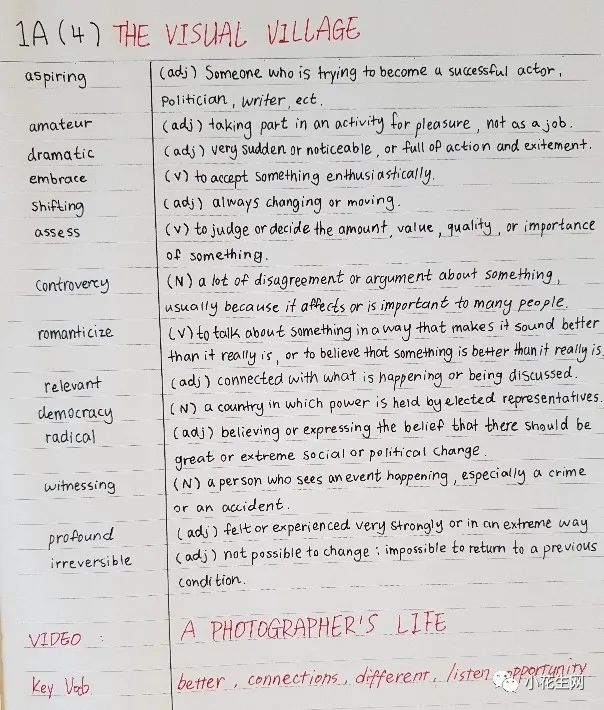 1A (4) THE VISUAL VILLAGE
aspiring (adj) Someone who is trying to become a successful actor,
Politician, writer, ect.
amateur (adj) taking part in an activity for pleasure, not as a job.
dramatic (adj) very sudden or noticeable, or full of action and exitement.
embrace (v) to accept something enthusiastically.
shifting (adj) always changing or moving.
assess (v) to judge or decide the amount, value, quality, or importance
of something.
controvercy (N) a lot of disagreement or argument about something,
usually because it affects or is important to many people.
romanticize (v) to talk about something in a way that makes it sound better
than it really is, or to believe that something is better than it really is.
relevant (adj) connected with what is happening or being discussed.
democracy (N) a country in which power is held by elected representatives.
radical (adj) believing or expressing the belief that there should be
great or extreme social or political change.
witnessing (N) a person who sees an event happening, especially a crime
or an accident.
profound (adj) felt or experienced very strongly or in an extreme way
irreversible (adj) not possible to change; impossible to return to a previous
condition.
VIDEO : A PHOTOGRAPHER'S LIFE
Key Vob better, connections, different, listen, opportunity
小花生网